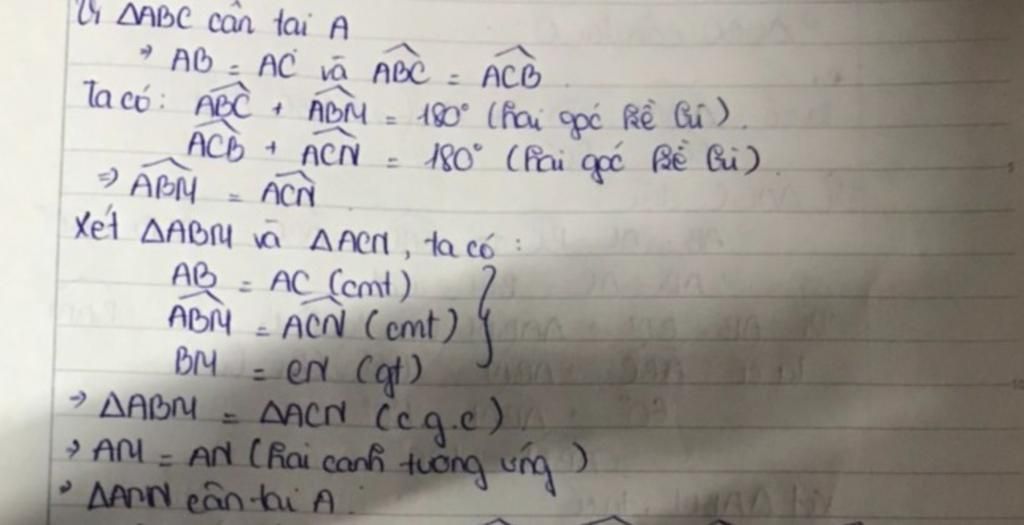 Vì ΔABC cân tại A
⇒ AB = AC và ABC = ACB
Ta có: ABC + ABM = 180° (hai góc kề bù).
ACB + ACN = 180° (hai góc kề bù)
⇒ ABM = ACN
Xét ΔABM và ΔACN, ta có:
AB = AC (cmt)
ABM = ACN (cmt)
BM = CN (gt)
⇒ ΔABM = ΔACN (c.g.c)
⇒ AM = AN (hai cạnh tương ứng)
⇒ ΔAMN cân tại A.